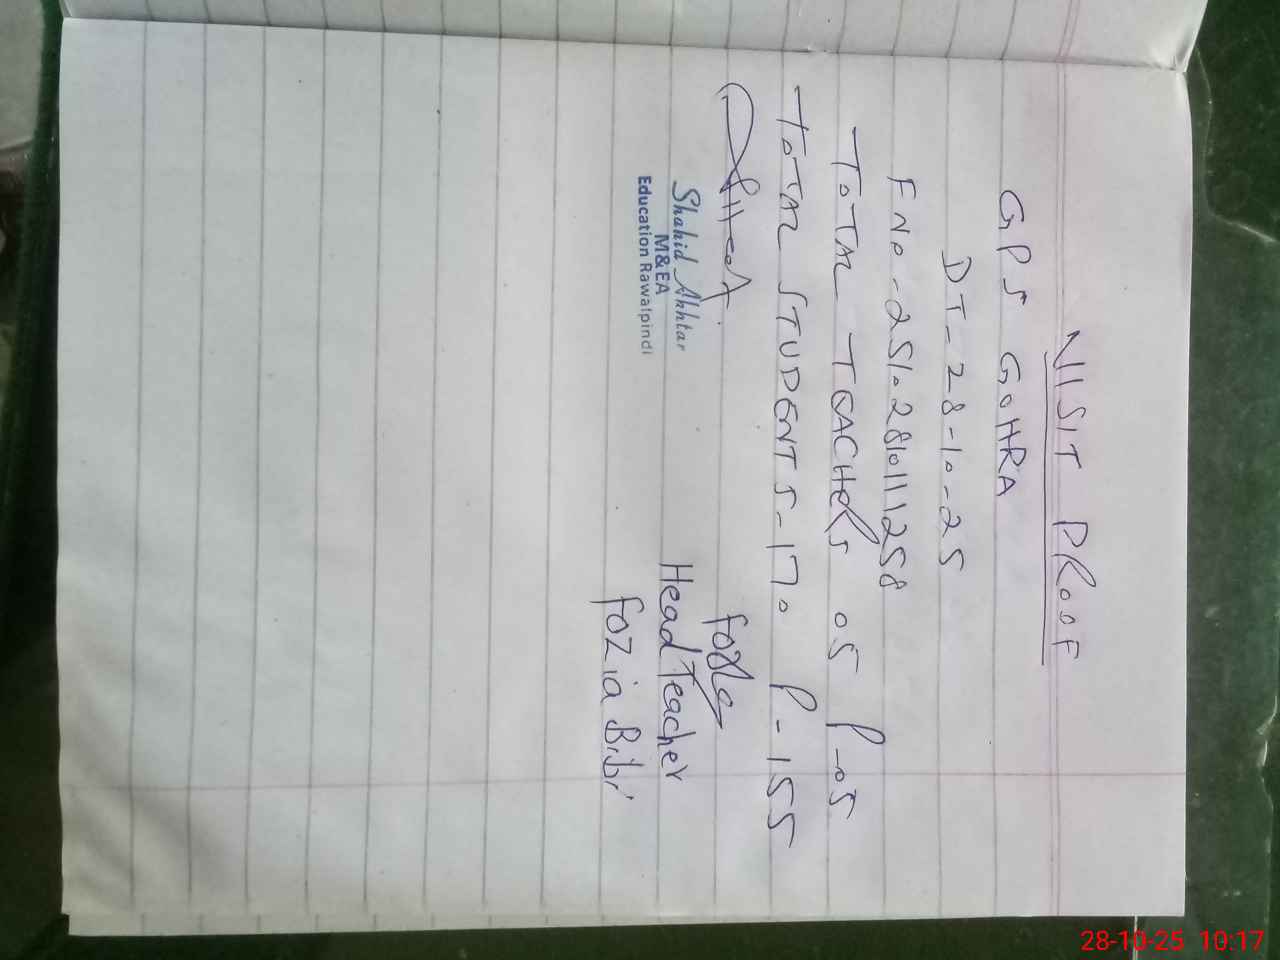 VISIT PROOF
GPS GOHRA
DT-28-10-25
F NO-25102810111258
TOTAL TEACHERS 05 P-05
TOTAL STUDENTS-170 P-155
Shahid Akhtar
M&EA
Education Rawalpindi
Head Teacher
Fozia Bibi
28-10-25 10:17